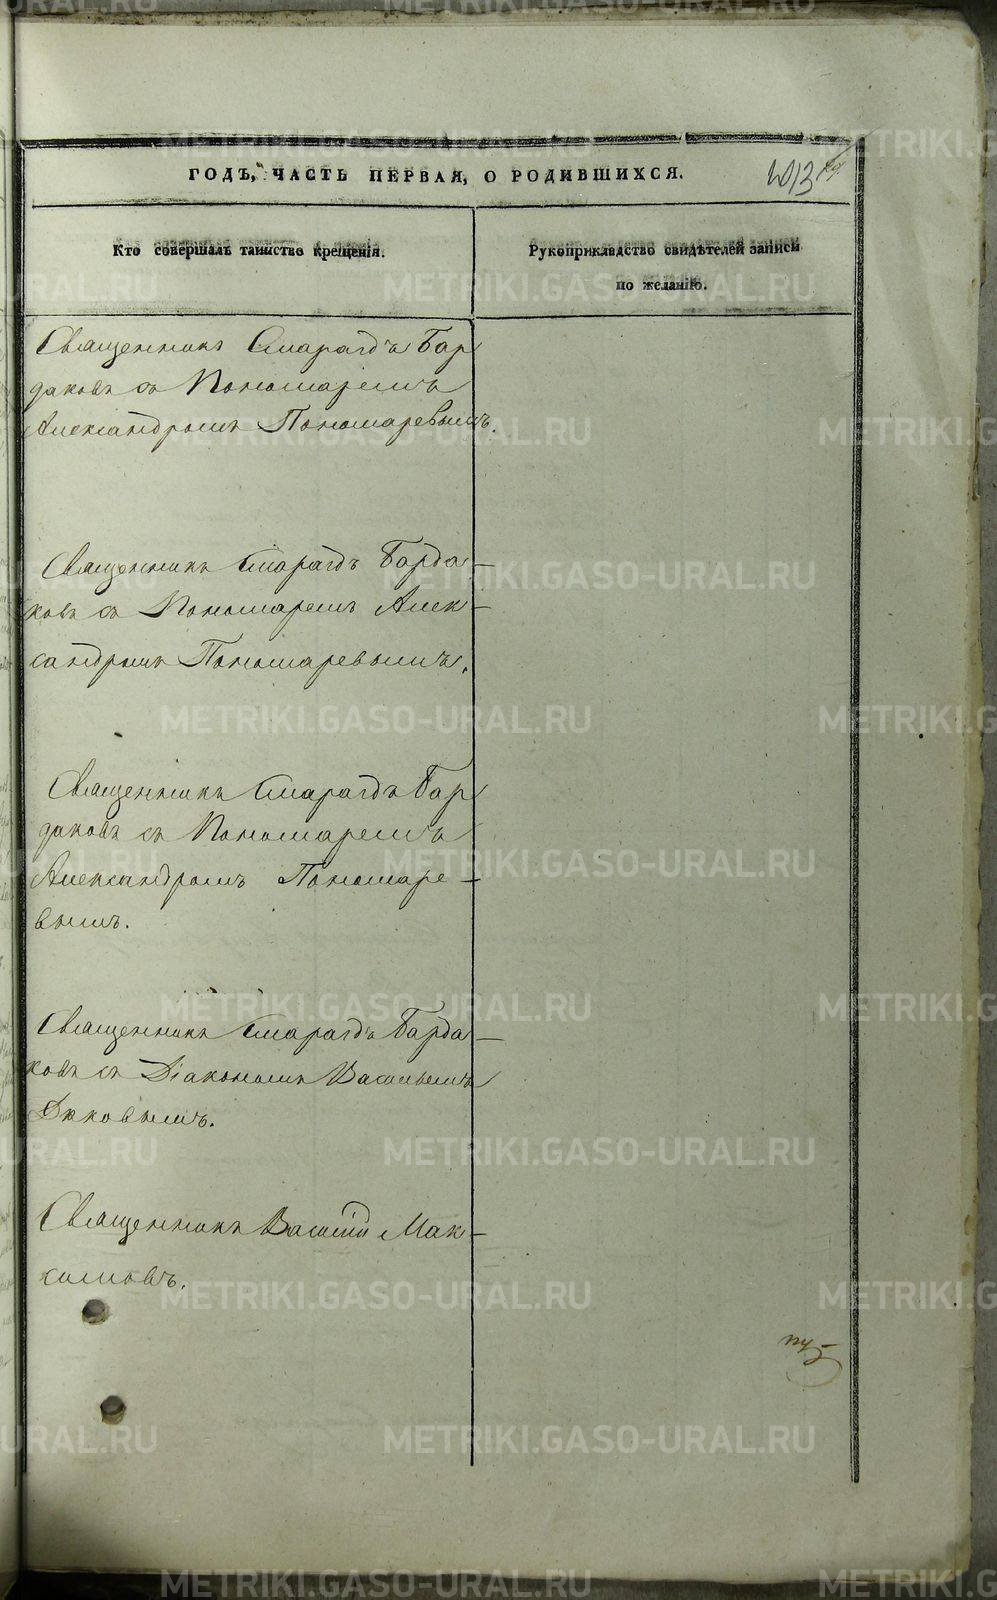 ГОДЪ, ЧАСТЬ ПЕРВАЯ, О РОДИВШИХСЯ.
1013
Кто совершалъ таинство крещенія.
Рукоприкладство свидѣтелей записи
по желанію.
Священникъ Смарагдъ Бар
даковъ съ Пономаремъ
Александромъ Пономаревымъ.
Священникъ Смарагдъ Барда-
ковъ съ Пономаремъ Алек-
сандромъ Пономаревымъ.
Священникъ Смарагдъ Бар
даковъ съ Пономаремъ
Александромъ Пономаре-
вымъ.
Священникъ Смарагдъ Барда-
ковъ съ Діакономъ Васильемъ
Священникъ Василій Мак-
симовъ.
METRIKI.GASO-URAL.RU